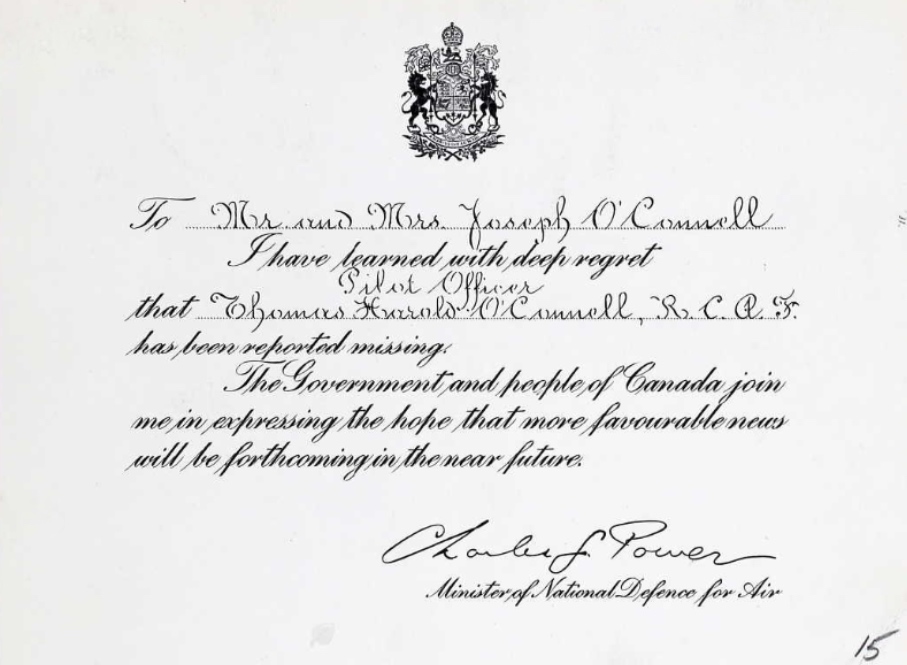 To Mr. and Mrs. Joseph O'Connell
I have learned with deep regret
Pilot Officer
that Thomas Harold O'Connell, R. C. A. F.
has been reported missing.
The Government and people of Canada join
me in expressing the hope that more favourable news
will be forthcoming in the near future.
Charles G. Power
Minister of National Defence for Air
15